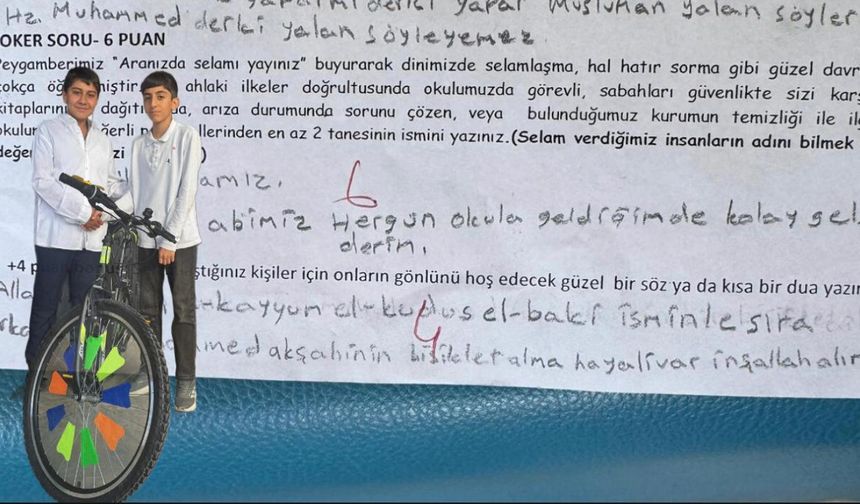 yaparmı derici yapar Müslüman yalan söyler
Hz. Muhammed derki yalan söyleyemez
OKER SORU- 6 PUAN
Peygamberimiz "Aranızda selamı yayınız" buyurarak dinimizde selamlaşma, hal hatır sorma gibi güzel davr
çokça öğ miştir. ahlaki ilkeler doğrultusunda okulumuzda görevli, sabahları güvenlikte sizi karş
kitaplarını dağıtı a, arıza durumunda sorunu çözen, veya bulunduğumuz kurumun temizliği ile il
okulu ğerli p llerinden en az 2 tanesinin ismini yazınız.(Selam verdiğimiz insanların adını bilmek
değe zi )
amız.
6
abimiz Hergün okula geldiğimde kolay gel
derim.
+4 p ştığınız kişiler için onların gönlünü hoş edecek güzel bir söz ya da kısa bir dua yazın
Alla -kayyum el-kudus el-baki isminle sıra
4
rka med akşahinin bisiklet alma hayali var inşallah alır